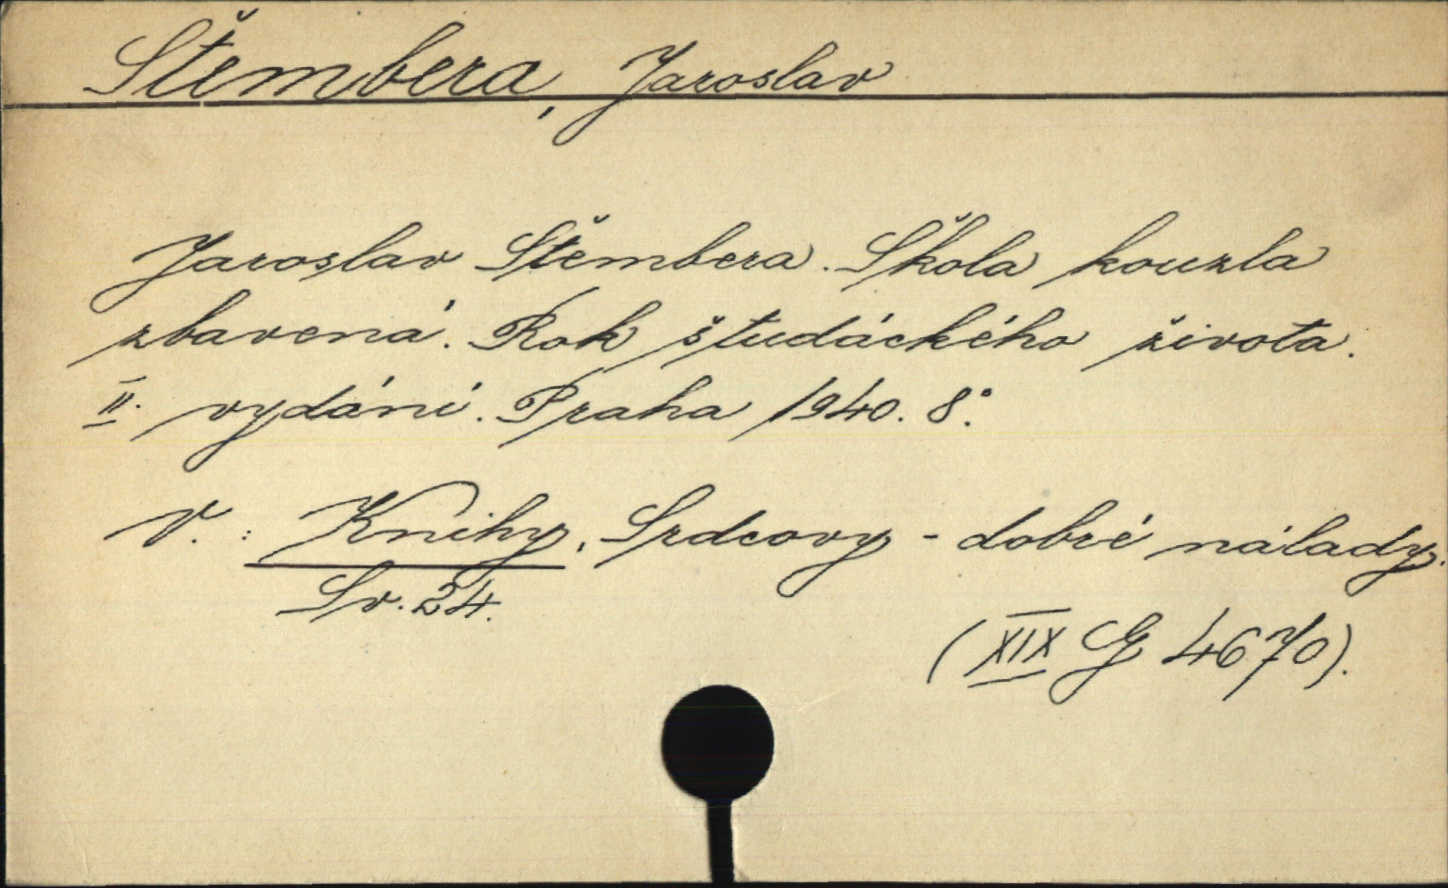 Štembera, Jaroslav
Jaroslav Štembera. Škola kouzla
zbavená. Rok študáckého života.
II. vydání. Praha 1940. 8°.
V.: Knihy, Srdcovy - dobré nálady.
Sv. 24.
(XIX G 4670).